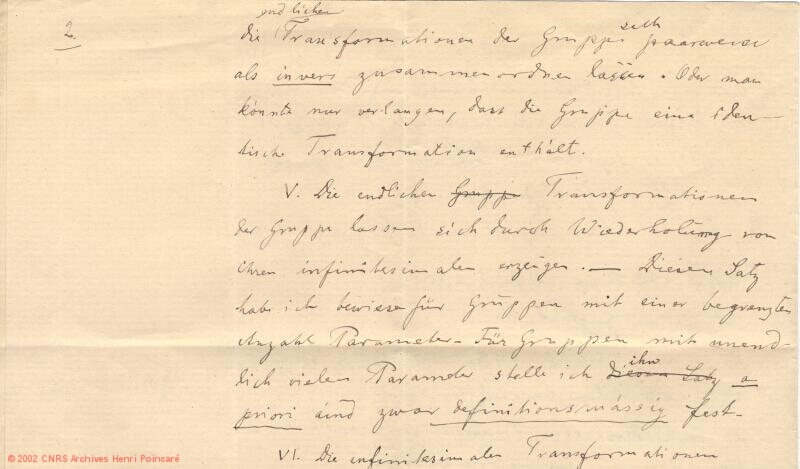 2.
endlichen
die Transformationen der Gruppe sich paarweise
als invers zusammenordnen lassen. Oder man
könnte nur verlangen, dass die Gruppe eine iden-
tische Transformation enthält.
V. Die endlichen Gruppe Transformationen
der Gruppe lassen sich durch Wiederholung von
ihren infinitesimalen erzeugen. — Diesen Satz
habe ich bewiesen für Gruppen mit einer begrenzten
Anzahl Parameter. Für Gruppen mit unend-
lich vielen Parameter stelle ich diesen Satz ihn a
priori und zwar definitionsmässig fest.
VI. Die infinitesimalen Transformationen
© 2002 CNRS Archives Henri Poincaré